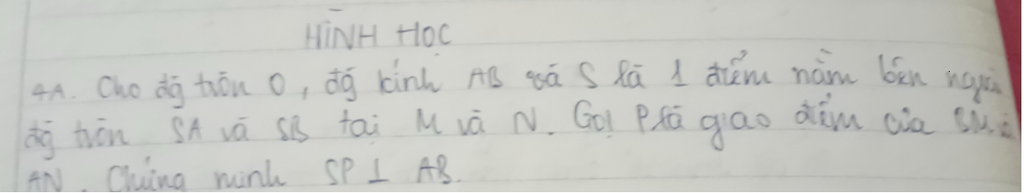 HÌNH HỌC
4A. Cho đg tròn O, đg kính AB và S là 1 điểm nằm bên ngoài
đg tròn SA và SB tại M và N. Gọi P là giao điểm của BM
AN. Chứng minh SP ⊥ AB.